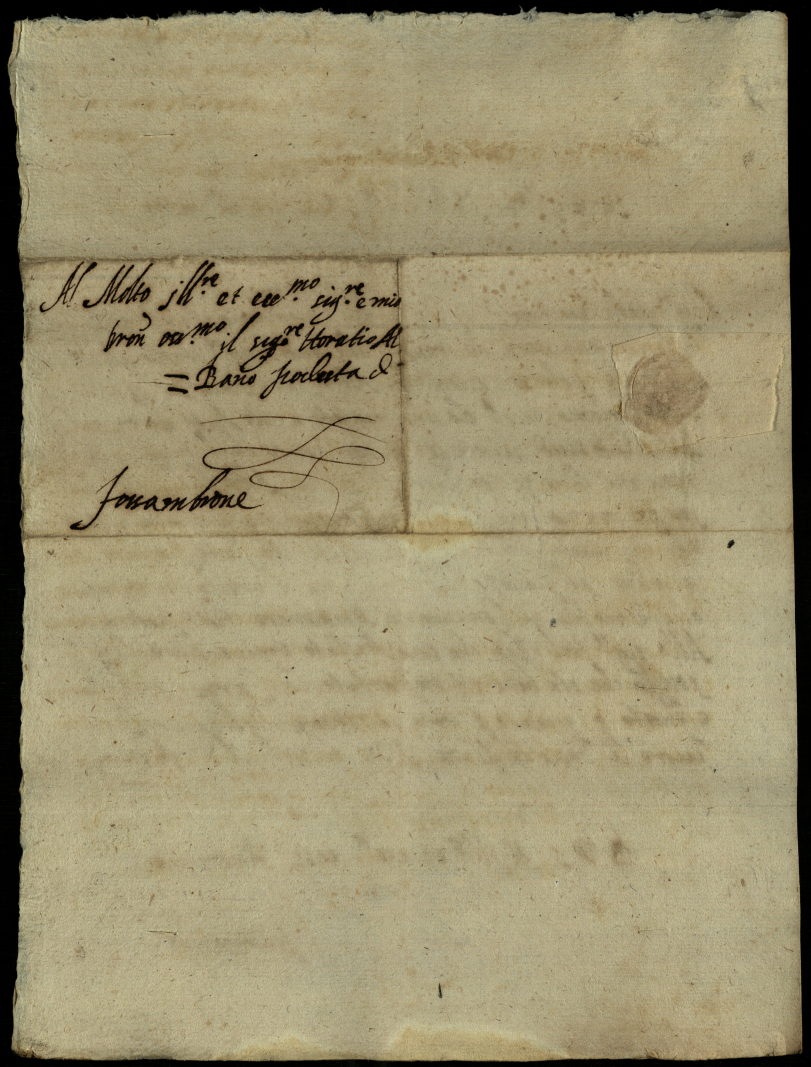 Al Molto Ill.re et ecc.mo sig.re e mio
pron oss.mo il sig.re Horatio Al
= Bano podesta d
fossambrone